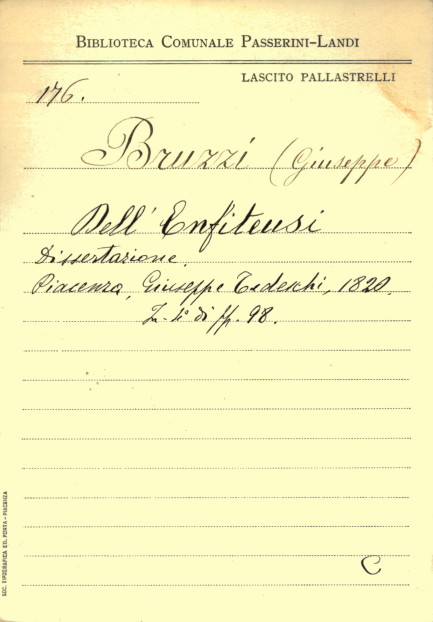 BIBLIOTECA COMUNALE PASSERINI-LANDI
LASCITO PALLASTRELLI
176.
Bruzzi (Giuseppe)
Dell' Enfiteusi
Dissertazione.
Piacenza, Giuseppe Tedeschi, 1820.
In-4° di pp. 98.
C
SOC. TIPOGRAFICA ED. PORTA - PIACENZA